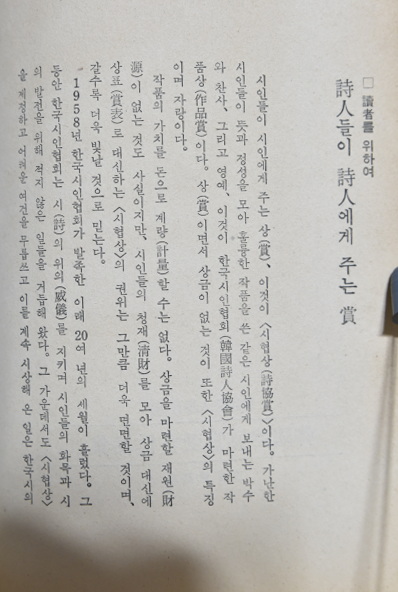 □ 讀者를 위하여
詩人들이 詩人에게 주는 賞
시인들이 시인에게 주는 상(賞), 이것이 〈시협상(詩協賞)〉이다. 가난한
시인들이 뜻과 정성을 모아 훌륭한 작품을 쓴 같은 시인에게 보내는 박수
와 찬사, 그리고 영예, 이것이 한국시인협회(韓國詩人協會)가 마련한 작
품상(作品賞)이다. 상(賞)이면서 상금이 없는 것이 또한 〈시협상〉의 특징
이며 자랑이다.
작품의 가치를 돈으로 계량(計量)할 수는 없다. 상금을 마련할 재원(財
源)이 없는 것도 사실이지만, 시인들의 청재(清財)를 모아 상금 대신에
상표(賞表)로 대신하는 〈시협상〉의 권위는 그만큼 더욱 면면할 것이며,
갈수록 더욱 빛날 것으로 믿는다.
1958년 한국시인협회가 발족한 이래 20여 년의 세월이 흘렀다. 그
동안 한국시인협회는 시(詩)의 위의(威儀)를 지키며 시인들의 화목과 시
의 발전을 위해 적지 않은 일들을 거듭해 왔다. 그 가운데서도 〈시협상〉
을 제정하고 어려운 여건을 무릅쓰고 이를 계속 시상해 온 일은 한국시의